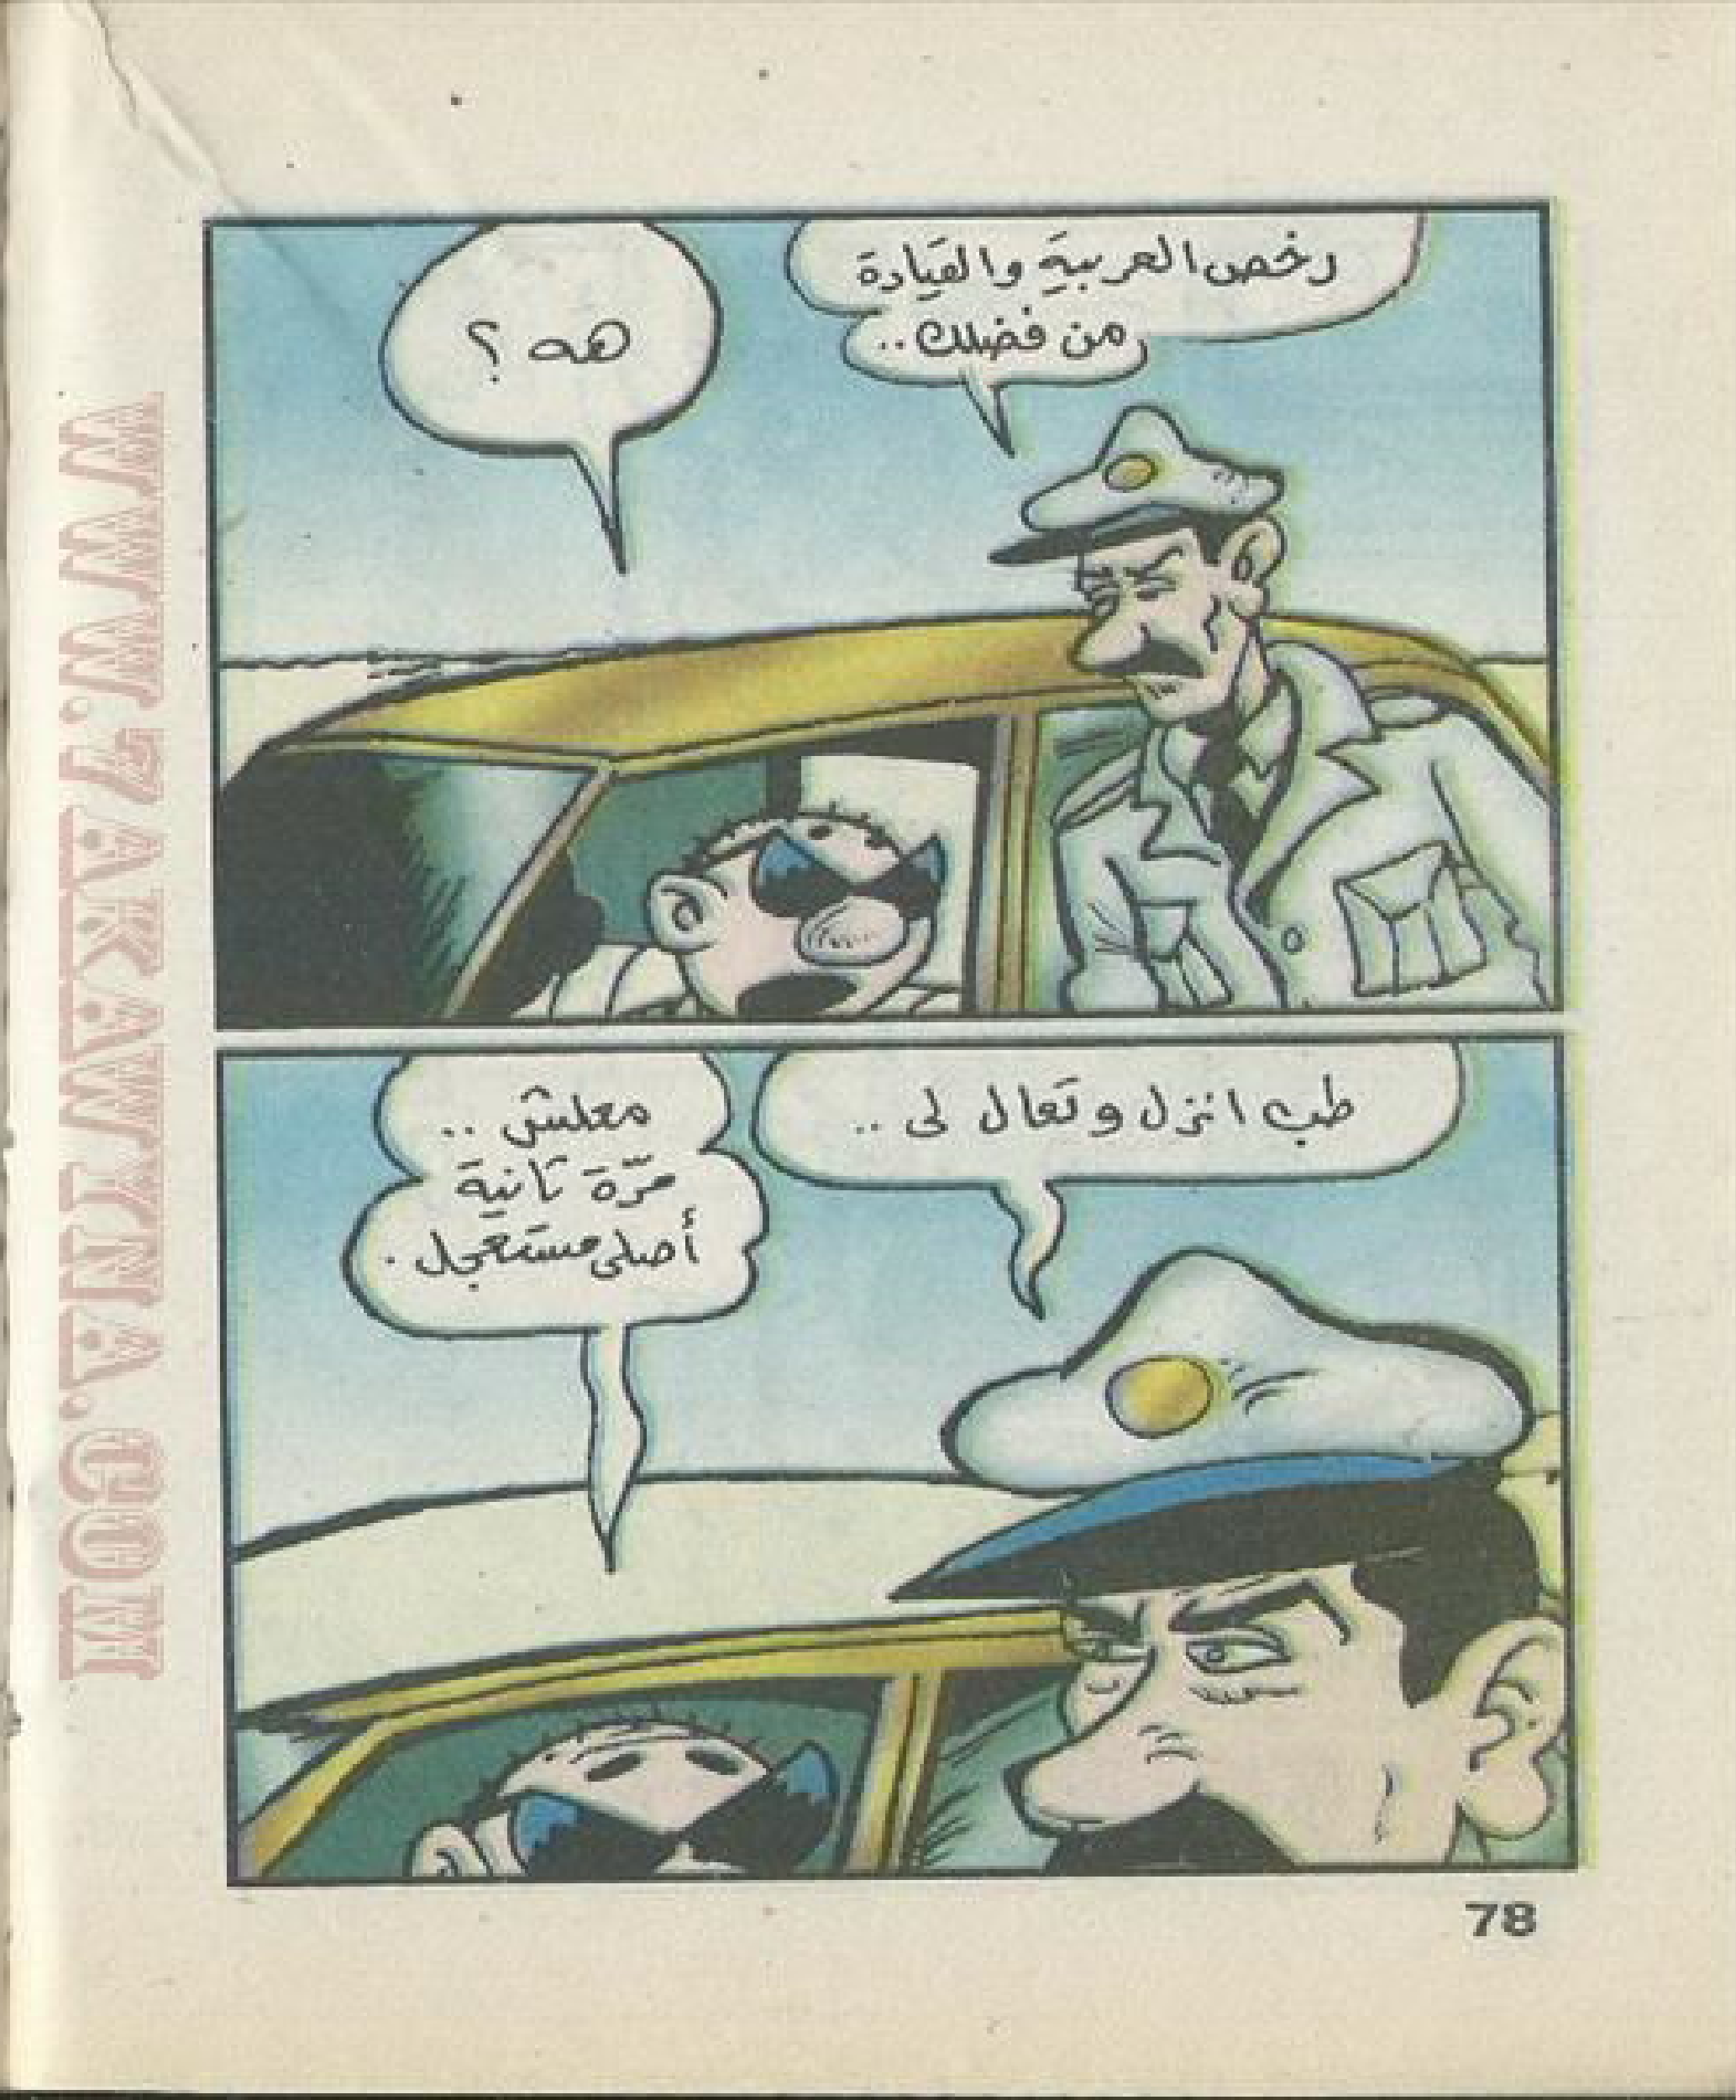 رخص العربية والقيادة
من فضلك..
هه؟
طب انزل وتعال لى ..
معلش ..
مرّة تانية
أصلى مستعجل .
78
WWW.7AKAWITNA.COM